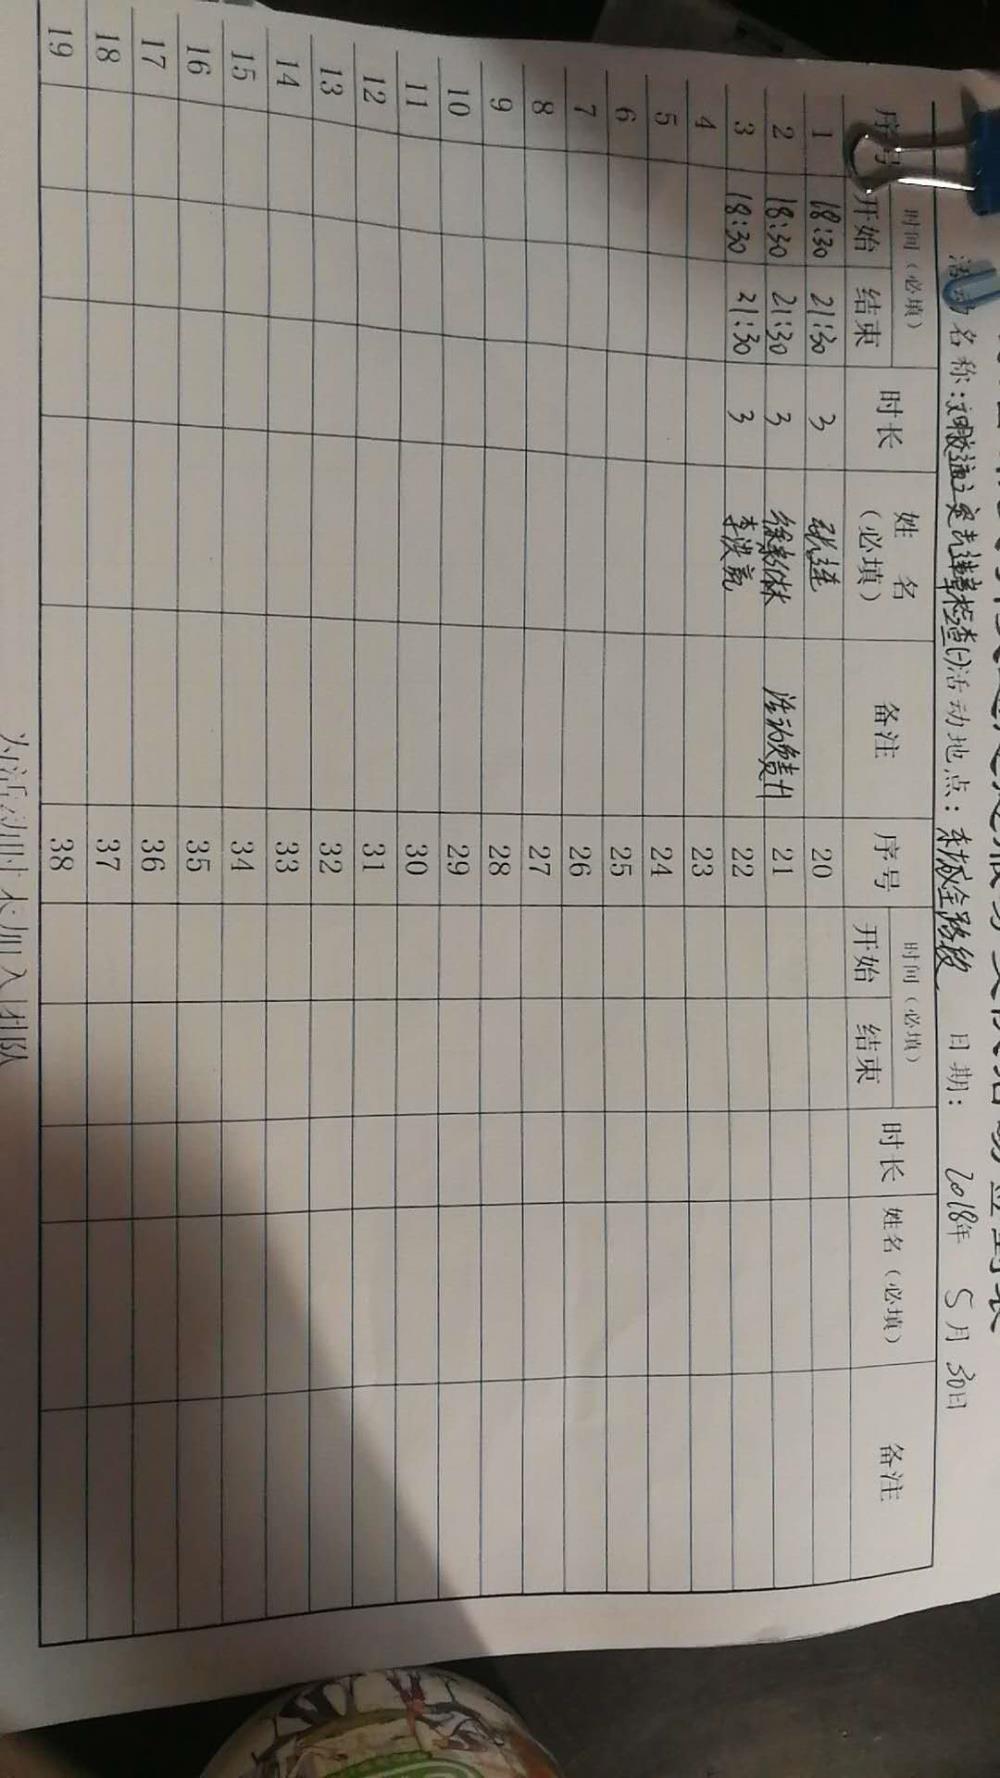 活动名称:文明交通之家去违章检查(一)活动地点:东城全路段 日期: 2018年 5月 30日
序号 时间(必填) 时长 姓名(必填) 备注 序号 时间(必填) 时长 姓名(必填) 备注
开始 结束 开始 结束
1 18:30 21:30 3 20
2 18:30 21:30 3 活动负责人 21
3 18:30 21:30 3 22
4 23
5 24
6 25
7 26
8 27
9 28
10 29
11 30
12 31
13 32
14 33
15 34
16 35
17 36
18 37
19 38
为活动时未加入团队